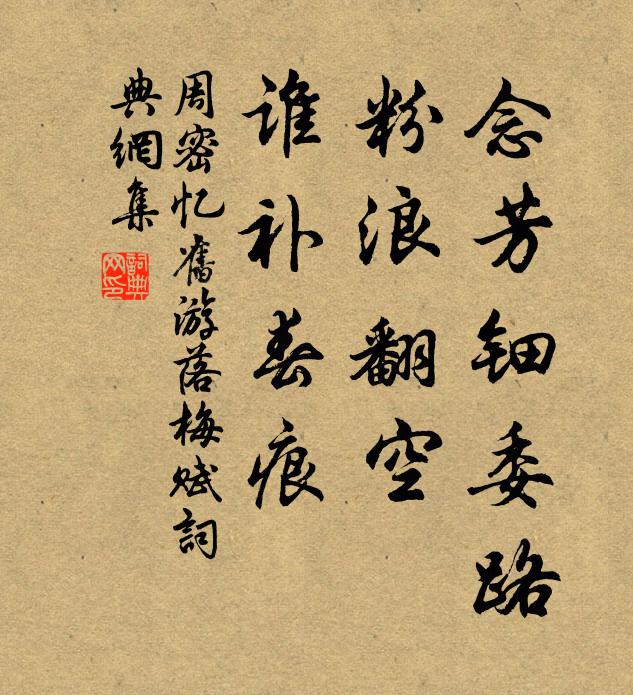 念芳钿委路
粉浪翻空
谁补春痕
周密忆舊游落梅赋詞
典網集
詞典
网印